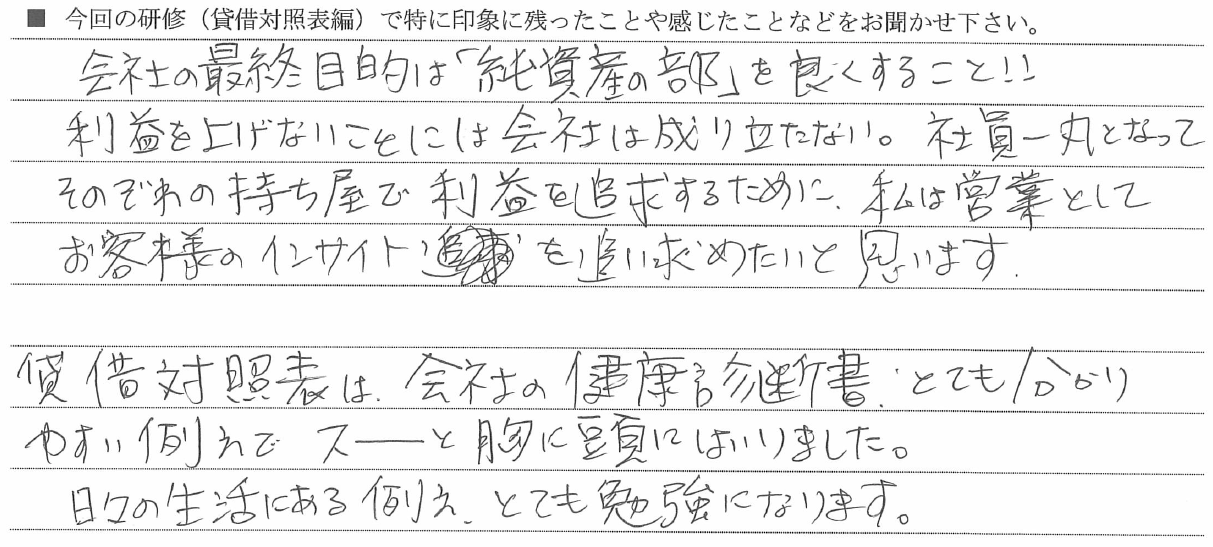 ■ 今回の研修（貸借対照表編）で特に印象に残ったことや感じたことなどをお聞かせ下さい。
会社の最終目的は「純資産の部」を良くすること!!
利益を上げないことには会社は成り立たない。社員一丸となって
そのぞれの持ち屋で利益を追求するために、私は営業として
お客様のインサイトを追い求めたいと思います.
貸借対照表は、会社の健康診断書、とても分かり
やすい例えでスーーと胸に頭にはいりました。
日々の生活にある例え、とても勉強になります。